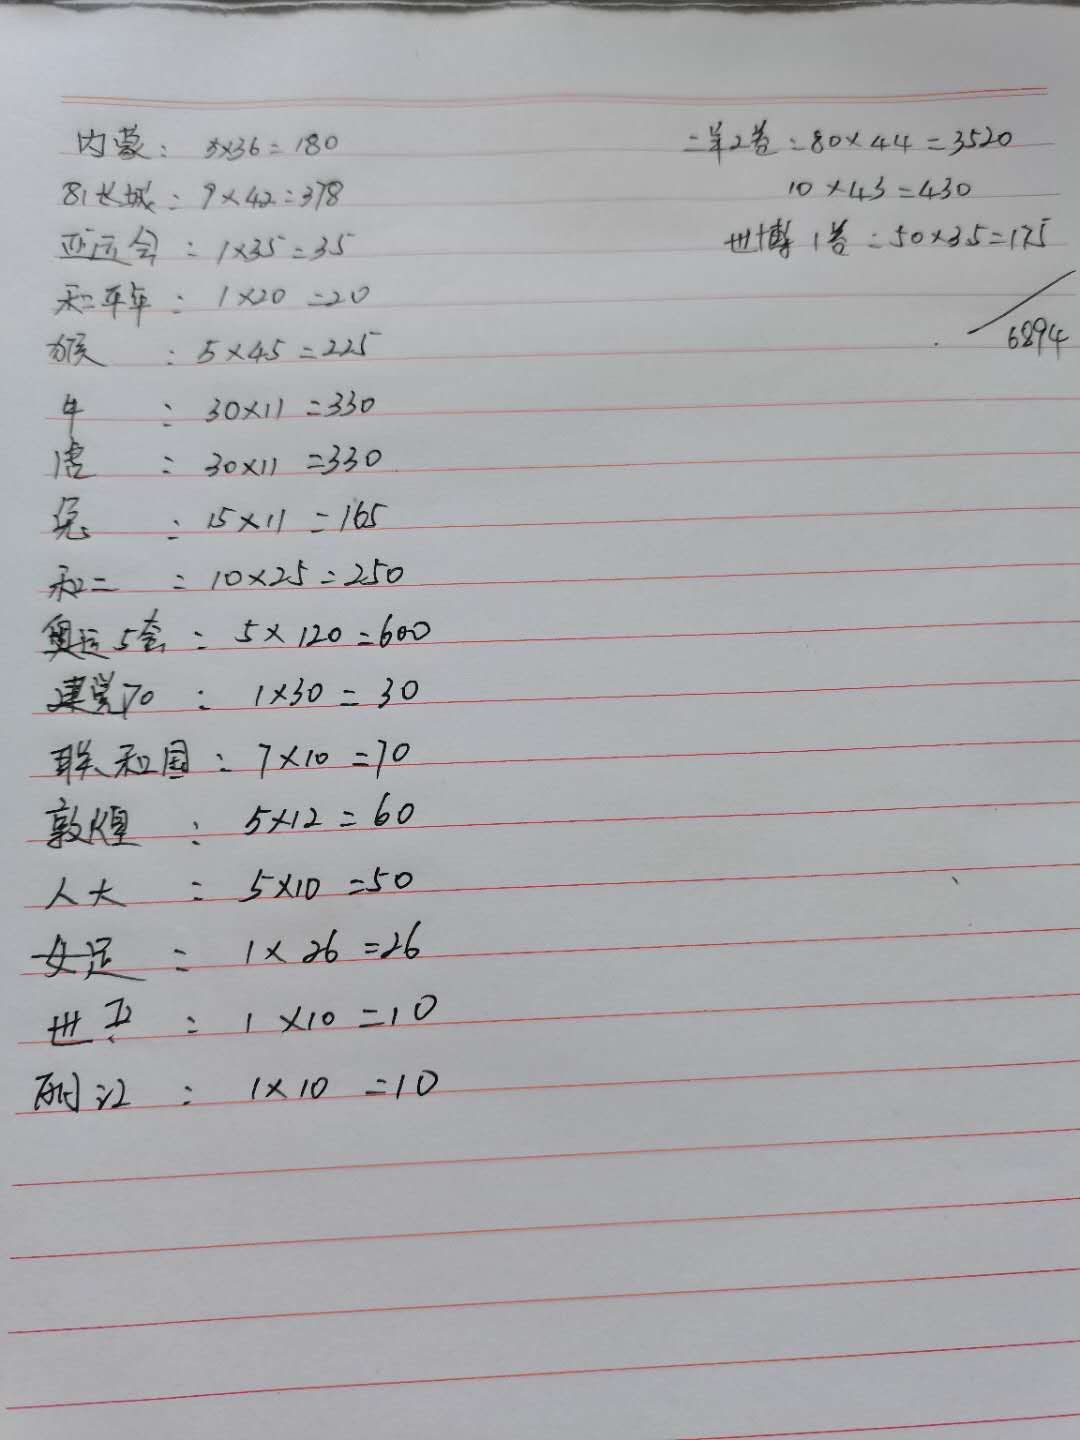 内蒙：5×36=180
81长城：9×42=378
亚运会：1×35=35
和平年：1×20=20
猴：5×45=225
牛：30×11=330
虎：30×11=330
兔：15×11=165
和二：10×25=250
奥运5套：5×120=600
建党70：1×30=30
联和国：7×10=70
敦煌：5×12=60
人大：5×10=50
女足：1×26=26
世卫：1×10=10
1×10=10
二羊2卷：80×44=3520
10×43=430
世博1卷：50×3.5=175
6894